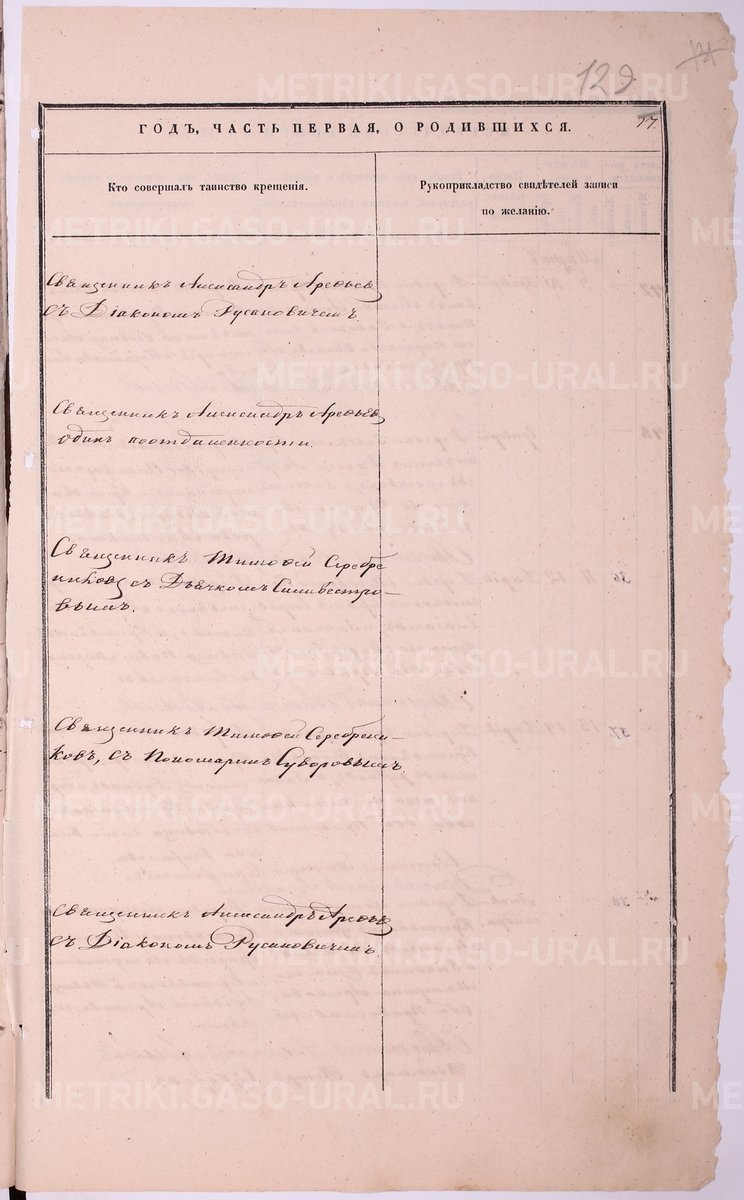 129
77.
ГОДЪ, ЧАСТЬ ПЕРВАЯ, О РОДИВШИХСЯ.
Кто совершалъ таинство крещенія.
Рукоприкладство свидѣтелей записи
по желанію.
Священникъ Александръ Арефьевъ
съ Діакономъ Русановичемъ
Священникъ Александръ Арефьевъ
одинъ поотдаленности.
Священникъ Тимофей Серебре
никовъ съ Дьячкомъ Сильвестро-
вымъ.
Священникъ Тимофей Серебрени-
ковъ, съ Пономаремъ Суворовымъ
Священникъ Александръ Арефьевъ
съ Діакономъ Русановичемъ
METRIKI.GASO-URAL.RU